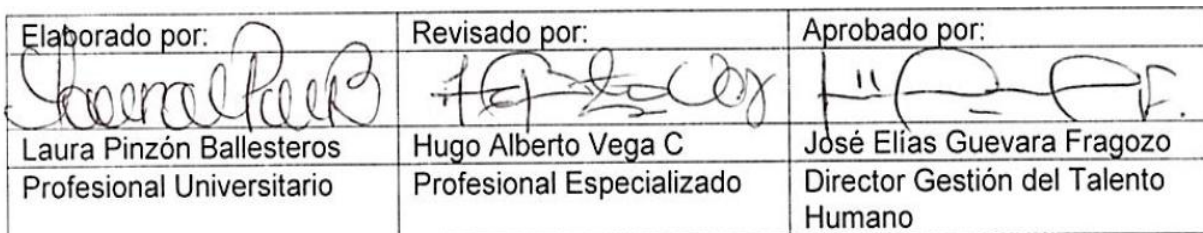 Elaborado por: Revisado por: Aprobado por:
Laura Pinzón Ballesteros Hugo Alberto Vega C José Elías Guevara Fragozo
Profesional Universitario Profesional Especializado Director Gestión del Talento
Humano